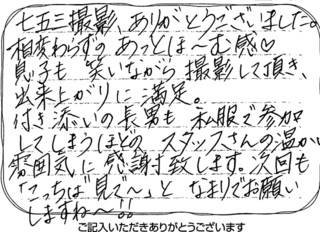 七五三撮影、ありがとうございました。
相変わらずのあっとほ〜む感♡
息子も笑いながら撮影して頂き、
出来上がりに満足。
付き添いの長男も私服で参加
してしまうほどのスタッフさんの温かい
雰囲気に感謝致します。次回も
「こっちば見で〜」となまりでお願い
しますね〜!!
ご記入いただきありがとうございます